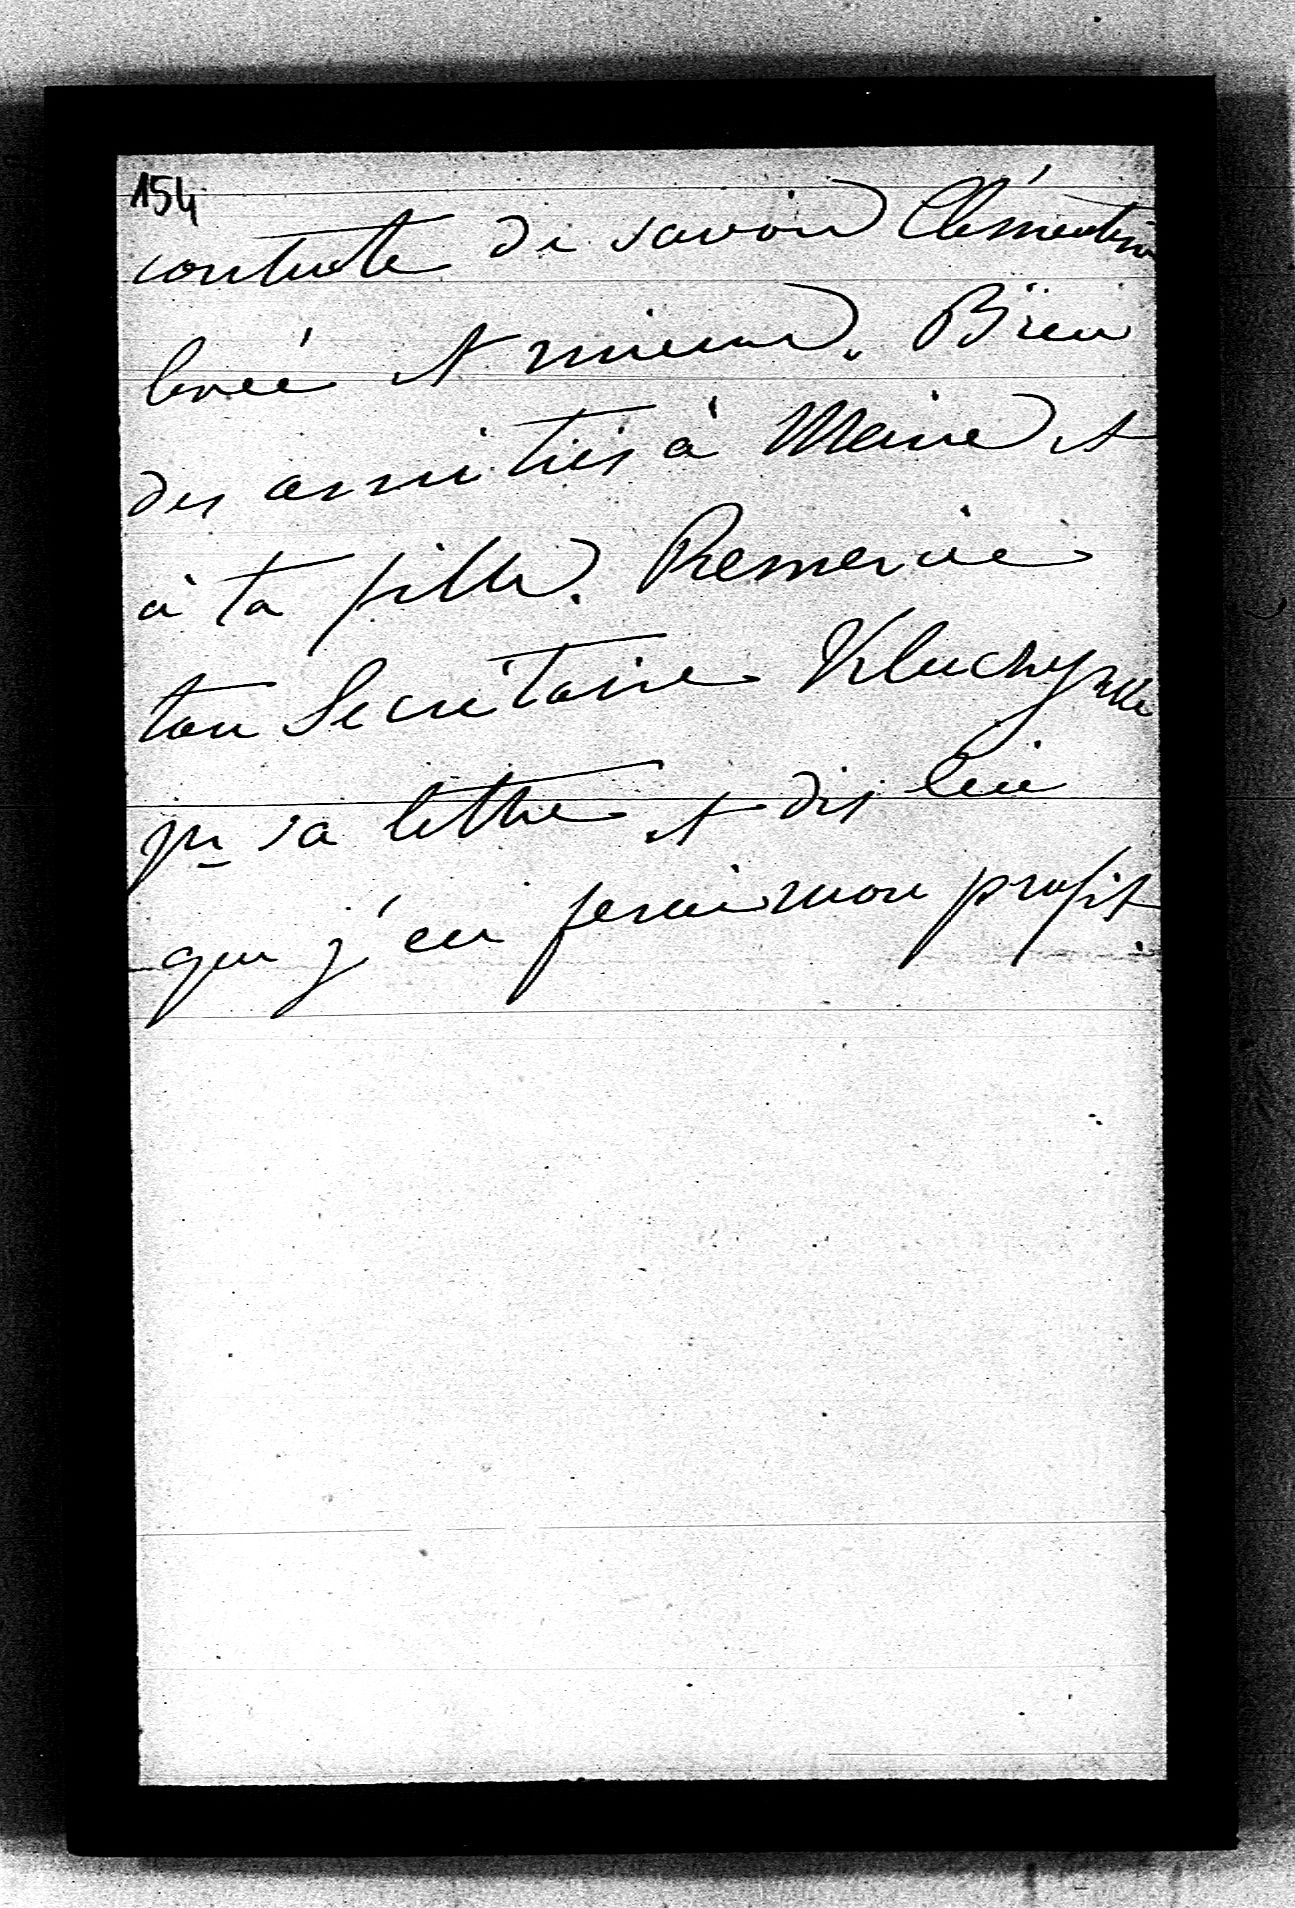 154
contente de savoir Clémentine
levée et mieux. Bien
des amitiés à Marie et
à ta fille. Remercie
ton Secrétaire
pr sa lettre et dis lui
que j'en ferai mon profit.